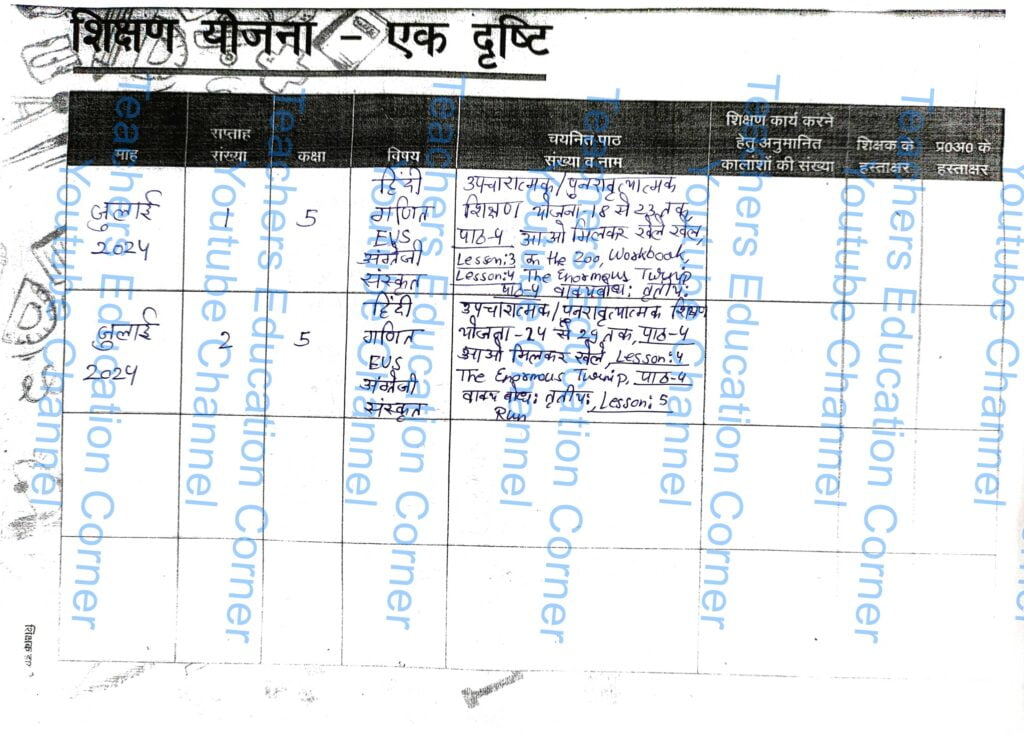 शिक्षण योजना - एक दृष्टि
माह
सप्ताह
संख्या
कक्षा
विषय
चयनित पाठ
सख्या व नाम
शिक्षण कार्य करने
हेतु अनुमानित
कालांशों की संख्या
शिक्षक के
हस्ताक्षर
प्र0अ0 के
हस्ताक्षर
जुलाई
2024
1
5
हिंदी
गणित
EVS
अंग्रेजी
संस्कृत
उपचारात्मक/पुनरावृत्यात्मक
शिक्षण योजना-18 से 23 तक,
पाठ-4 आओ मिलकर खेले खेल,
Lesson:3 In the Zoo, Workbook,
Lesson:4 The Enormous Turnip
पाठ-4 वाक्यबोध: तृतीय:
जुलाई
2024
2
5
हिंदी
गणित
EVS
अंग्रेजी
संस्कृत
उपचारात्मक/पुनरावृत्यात्मक शिक्षण
योजना-24 से 29 तक, पाठ-4
आओ मिलकर खेले, Lesson:4
The Enormous Turnip, पाठ-4
वाक्य बोध: तृतीय:, Lesson:5
Run
Teachers Education Corner
Youtube Channel
Teachers Education Corner
Youtube Channel
Teachers Education Corner
Youtube Channel
Teachers Education Corner
Youtube Channel